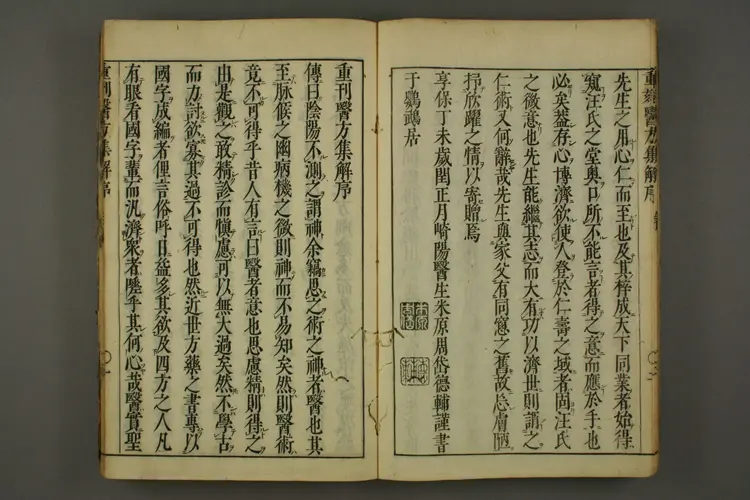 先生之用心仁而至也及其梓成天下同業者始得
窺汪氏之堂奧口所不能言者得之意而應於手也
必矣蓋存心博濟欲使人登於仁壽之域者固汪氏
之微意也先生能繼其志而大有功以濟世則謂之
仁術又何辭哉先生與家父有同窓之舊故忘膚陋
抒欣躍之情以寄贈焉
享保丁未歲閏正月崎陽醫生朱原周岱德輔謹書
于鸚鵡居
重刊醫方集解序
傳曰陰陽不測之謂神余竊思之術之神者醫也其
至脉候之幽病機之微則神而不易知矣然則醫術
竟不可得乎昔人有言曰醫者意也思慮精則得之
由是觀之敢精診而慎慮可以無大過矣然不學古
而力討欲寡其過不可得也然近世方藥之書專以
國字成編者俚言俗呼日益多其欲及四方之人凡
有眼看國字輩而汎濟衆者歟乎其何心哉醫實聖
重刊醫方集解序